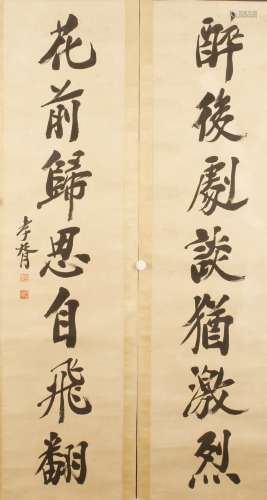 醉後劇談猶激烈
花前歸思自飛翻
孝胥